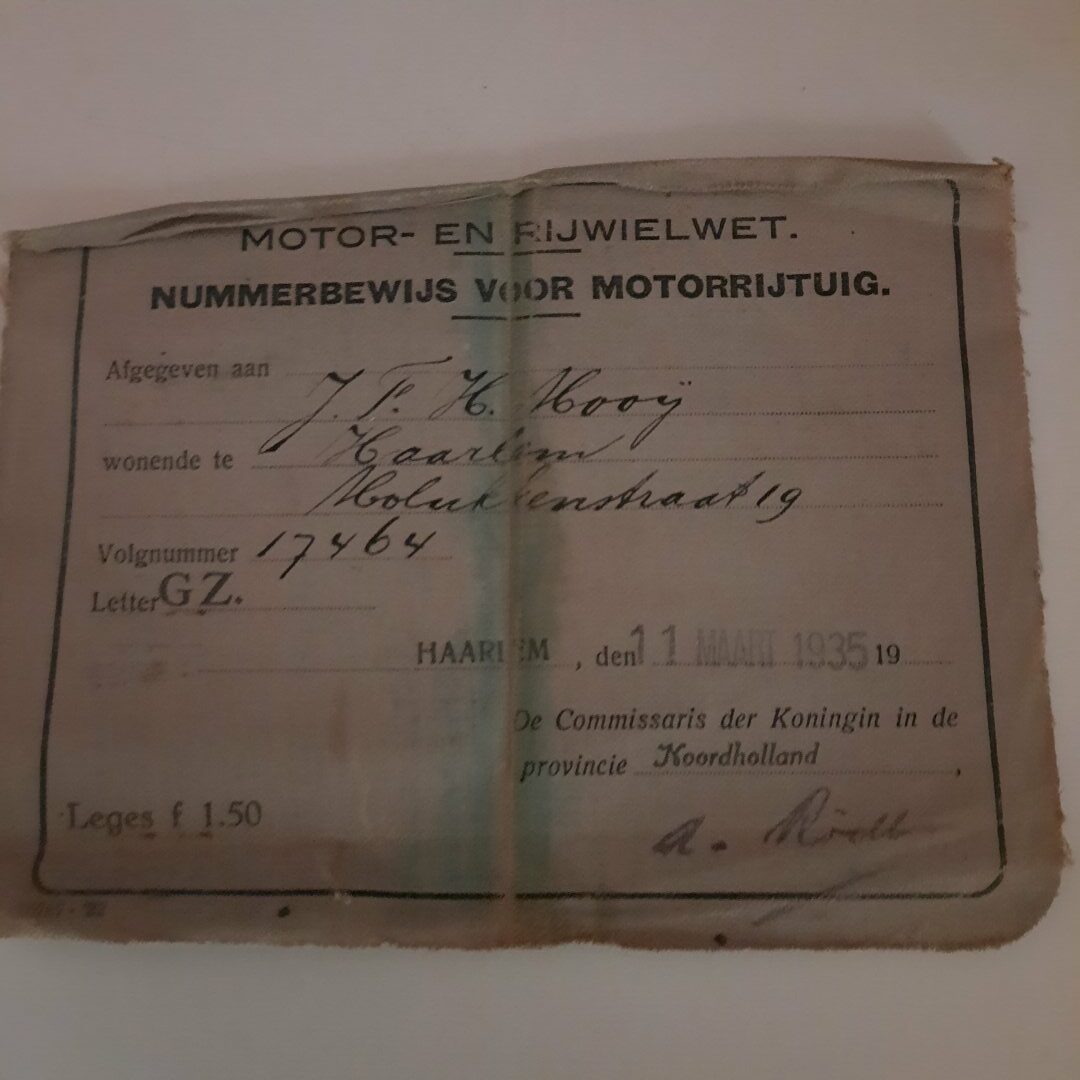 MOTOR- EN RIJWIELWET.
NUMMERBEWIJS VOOR MOTORRIJTUIG.
Afgegeven aan
J. F. H. Mooÿ
wonende te Haarlem
Molukkenstraat 19
Volgnummer 17464
Letter GZ.
HAARLEM, den 11 MAART 1935 19
De Commissaris der Koningin in de
provincie Noordholland,
Leges f 1.50
A. Röell